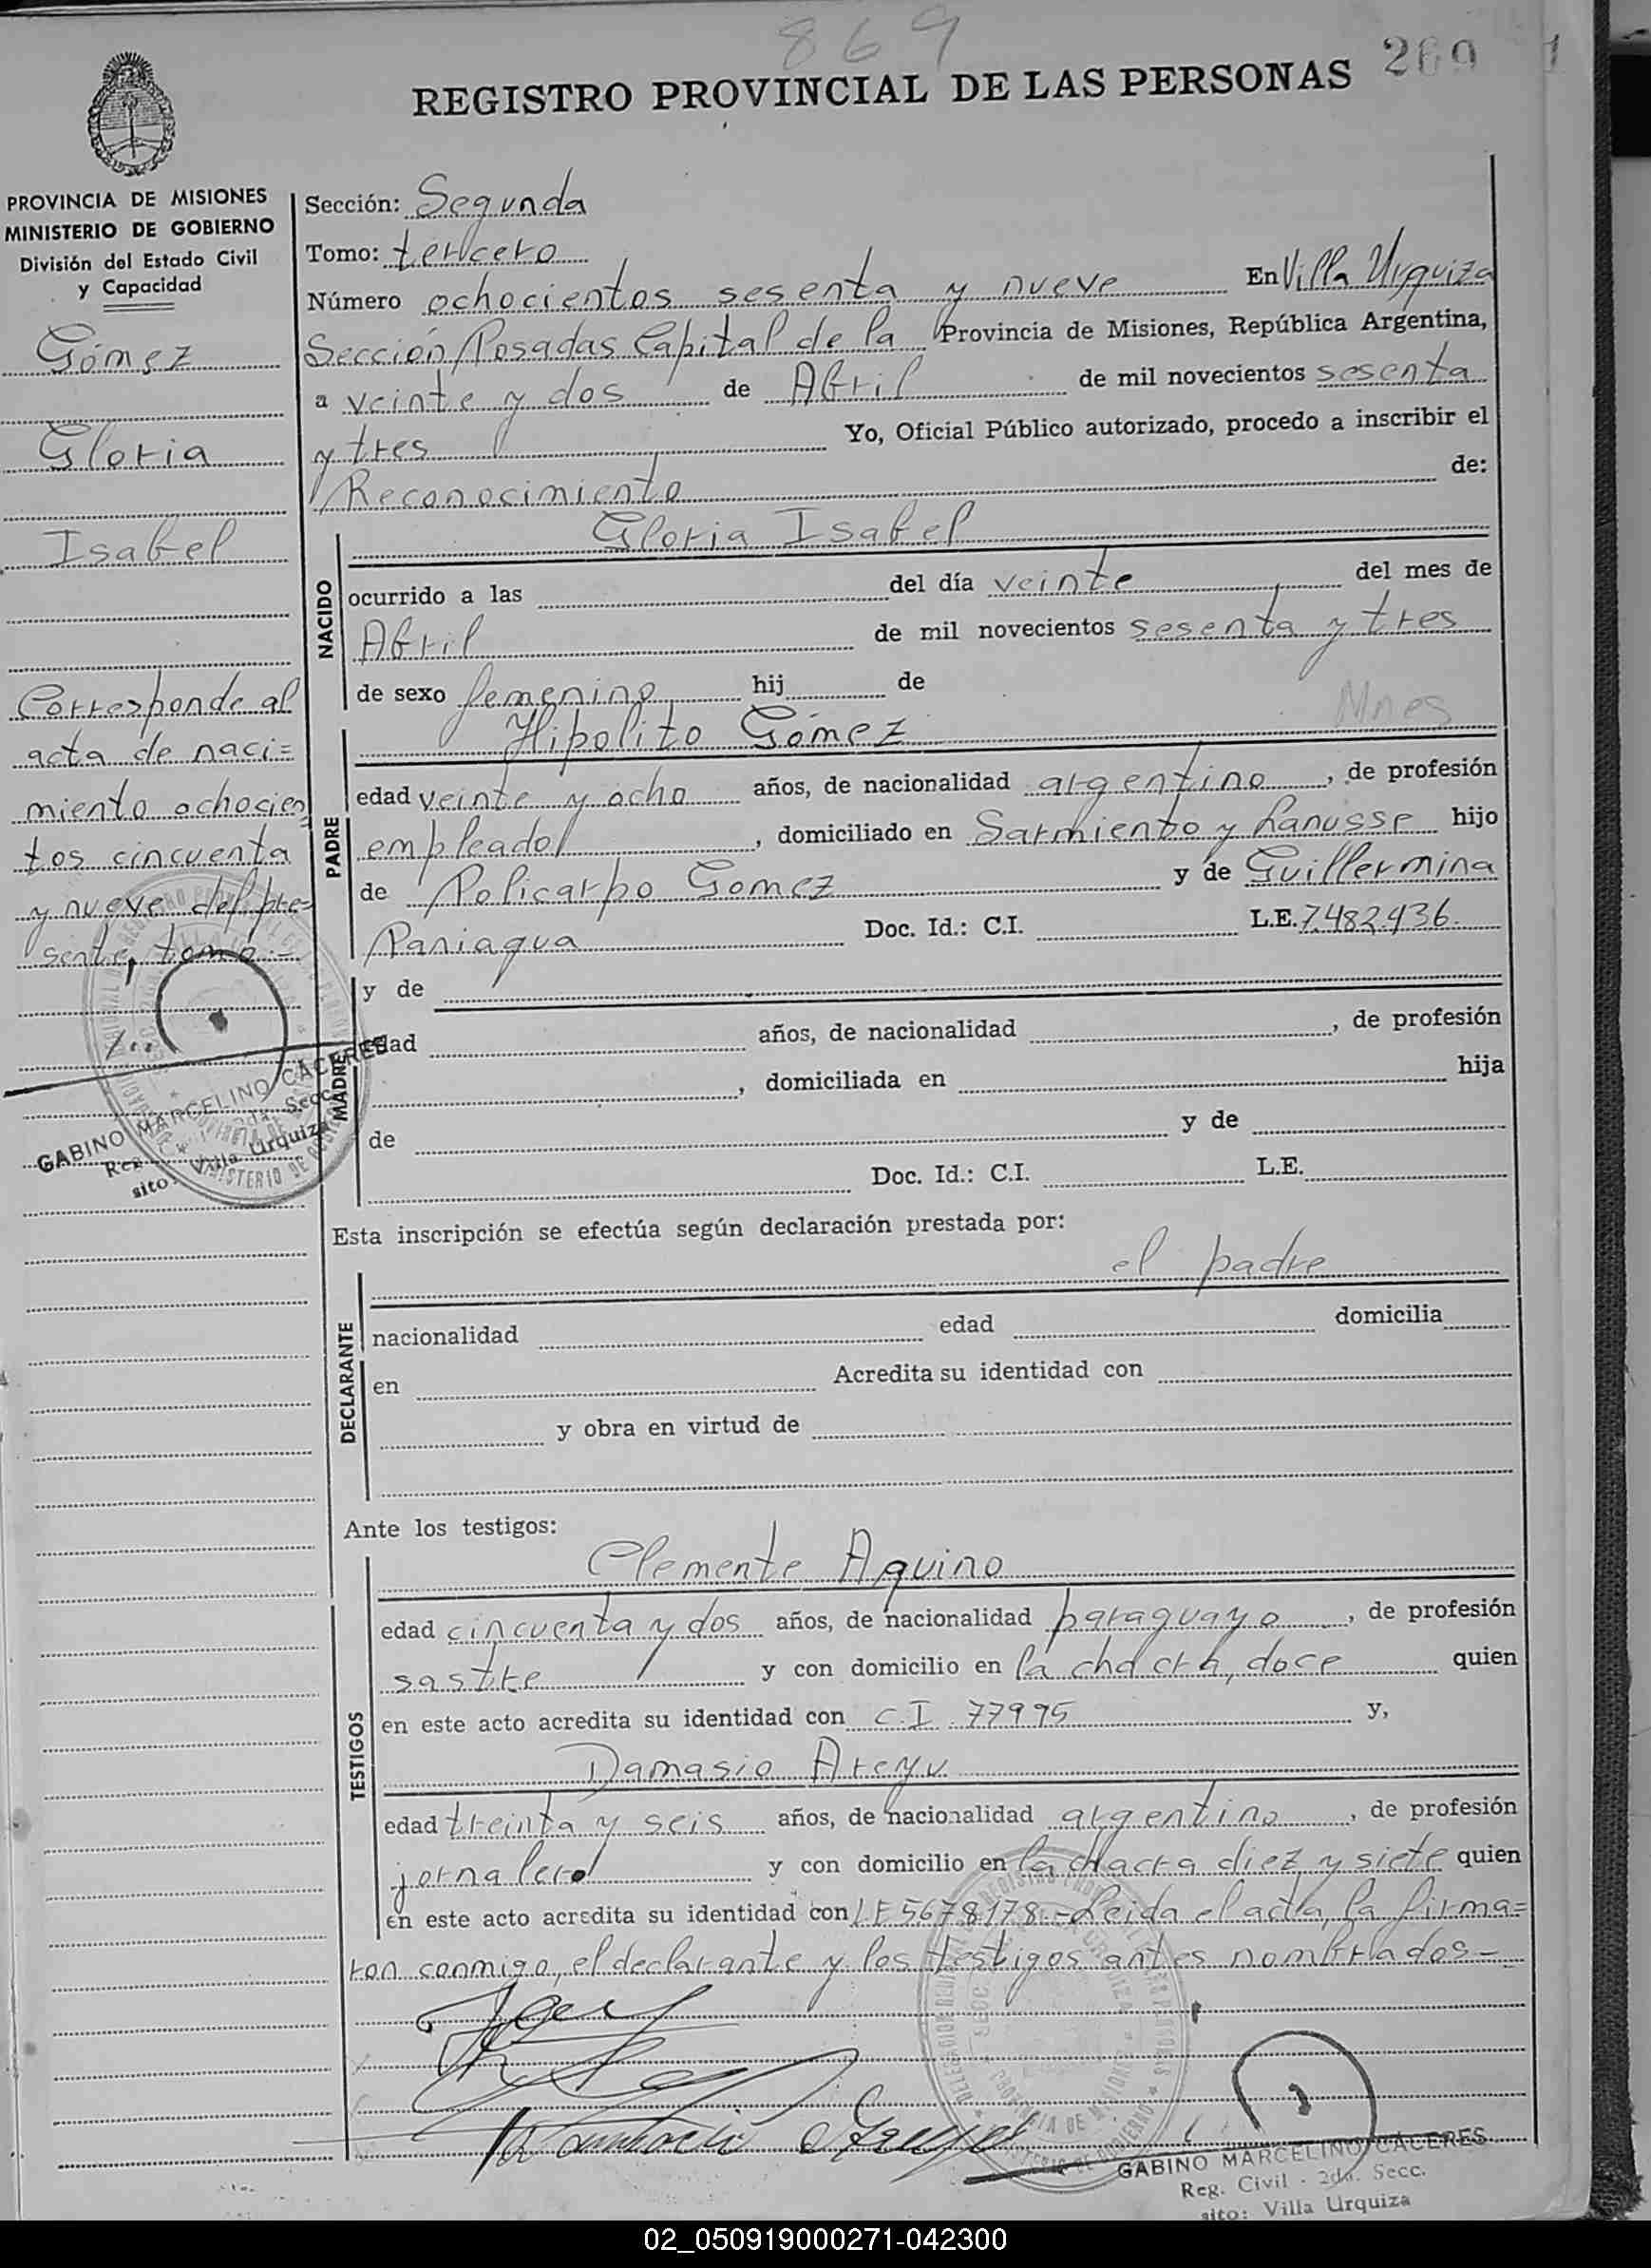 869
269
REGISTRO PROVINCIAL DE LAS PERSONAS
PROVINCIA DE MISIONES
MINISTERIO DE GOBIERNO
División del Estado Civil
y Capacidad
Gómez
Gloria
Isabel
Corresponde al
acta de naci=
miento ochocien
tos cincuenta
y nueve del pre=
sente, tomo.-
GABINO MARCELINO CACERES
Reg. 2da. Secc.
sito: Villa Urquiza
Sección: Segunda
Tomo: tercero
Número ochocientos sesenta y nueve En Villa Urquiza
Sección Posadas Capital de la Provincia de Misiones, República Argentina,
a veinte y dos de Abril de mil novecientos sesenta
y tres Yo, Oficial Público autorizado, procedo a inscribir el
Reconocimiento de:
NACIDO
Gloria Isabel
ocurrido a las del día veinte del mes de
Abril de mil novecientos sesenta y tres
de sexo femenino hij de
Mnes
PADRE
Hipolito Gómez
edad veinte y ocho años, de nacionalidad argentino, de profesión
empleado, domiciliado en Sarmiento y Lanusse hijo
de Policarpo Gomez y de Guillermina
Paniagua Doc. Id.: C.I. L.E. 7.482.936.
MADRE
y de
edad años, de nacionalidad , de profesión
, domiciliada en hija
de y de
Doc. Id.: C.I. L.E.
Esta inscripción se efectúa según declaración prestada por:
el padre
DECLARANTE
nacionalidad edad domicilia
en Acredita su identidad con
y obra en virtud de
Ante los testigos:
TESTIGOS
Clemente Aquino
edad cincuenta y dos años, de nacionalidad paraguayo, de profesión
sastre y con domicilio en la chacra, doce quien
en este acto acredita su identidad con C.I. 77995 y,
Damasio Areyu
edad treinta y seis años, de nacionalidad argentino, de profesión
jornalero y con domicilio en la chacra diez y siete quien
en este acto acredita su identidad con LE 5678178.- Leida el acta, la firma=
ron conmigo, el declarante y los testigos antes nombrados-
GABINO MARCELINO CACERES
Reg. Civil - 2da. Secc.
sito: Villa Urquiza
02_050919000271-042300